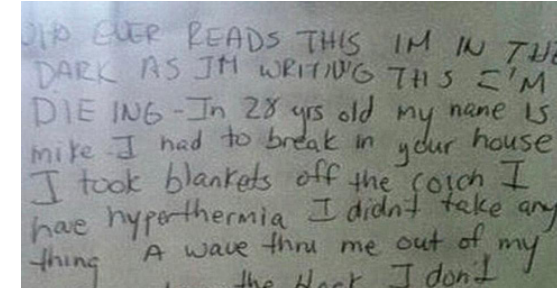 EVER READS THIS IM IN THE
DARK AS IM WRITING THS I'M
DIE ING - Im 28 yrs old my name is
mike I had to break in your house
I took blankets off the coich I
have hyperthermia I didn't take any
thing A wave thru me out of my
the I don't